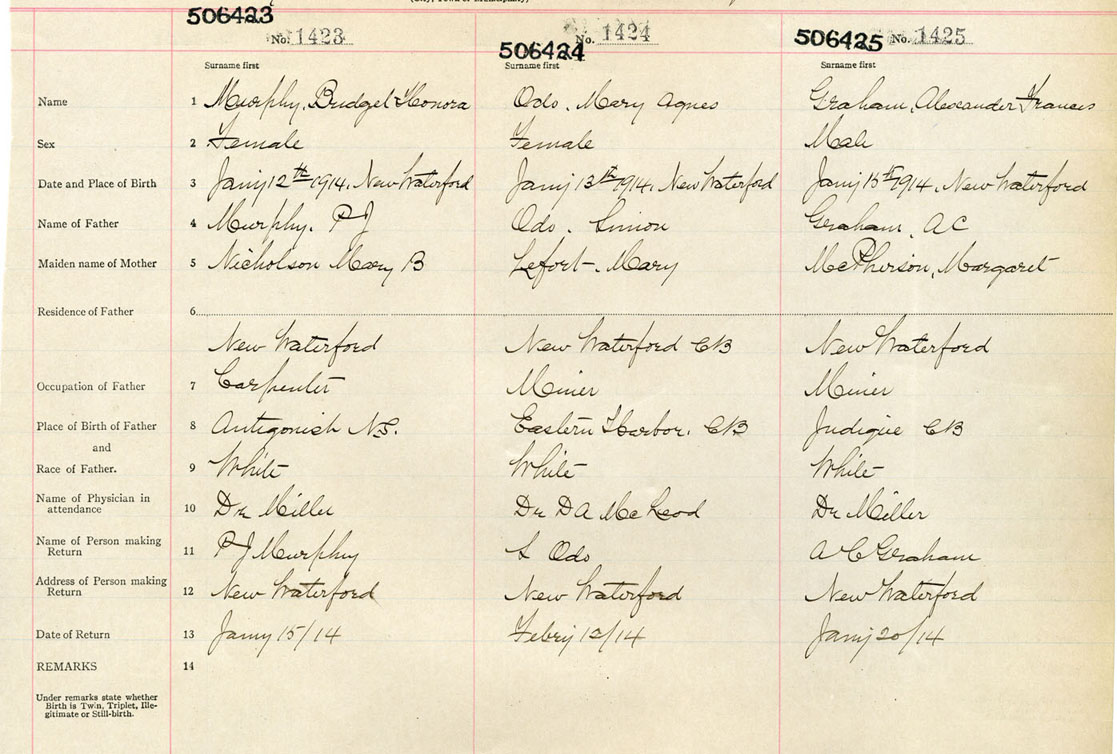 506423 506424 506425
No. 1423 No. 1424 No. 1425
Surname first Surname first Surname first
Name 1 Murphy, Bridget Honora Odo. Mary Agnes Graham, Alexander Francis
Sex 2 Female Female Male
Date and Place of Birth 3 Jany 12th 1914. New Waterford Jany 13th 1914. New Waterford Jany 15th 1914. New Waterford
Name of Father 4 Murphy. P J Odo. Simon Graham, A C
Maiden name of Mother 5 Nicholson Mary B Lefort, Mary McPherson, Margaret
Residence of Father 6
New Waterford New Waterford CB New Waterford
Occupation of Father 7 Carpenter Miner Miner
Place of Birth of Father 8 Antigonish N.S. Eastern Harbor. CB Judique CB
and
Race of Father. 9 White White White
Name of Physician in
attendance 10 Dr Miller Dr D A McLeod Dr Miller
Name of Person making
Return 11 P J Murphy S Odo A C Graham
Address of Person making
Return 12 New Waterford New Waterford New Waterford
Date of Return 13 Jany 15/14 Febry 12/14 Jany 20/14
REMARKS 14
Under remarks state whether
Birth is Twin, Triplet, Ille-
gitimate or Still-birth.